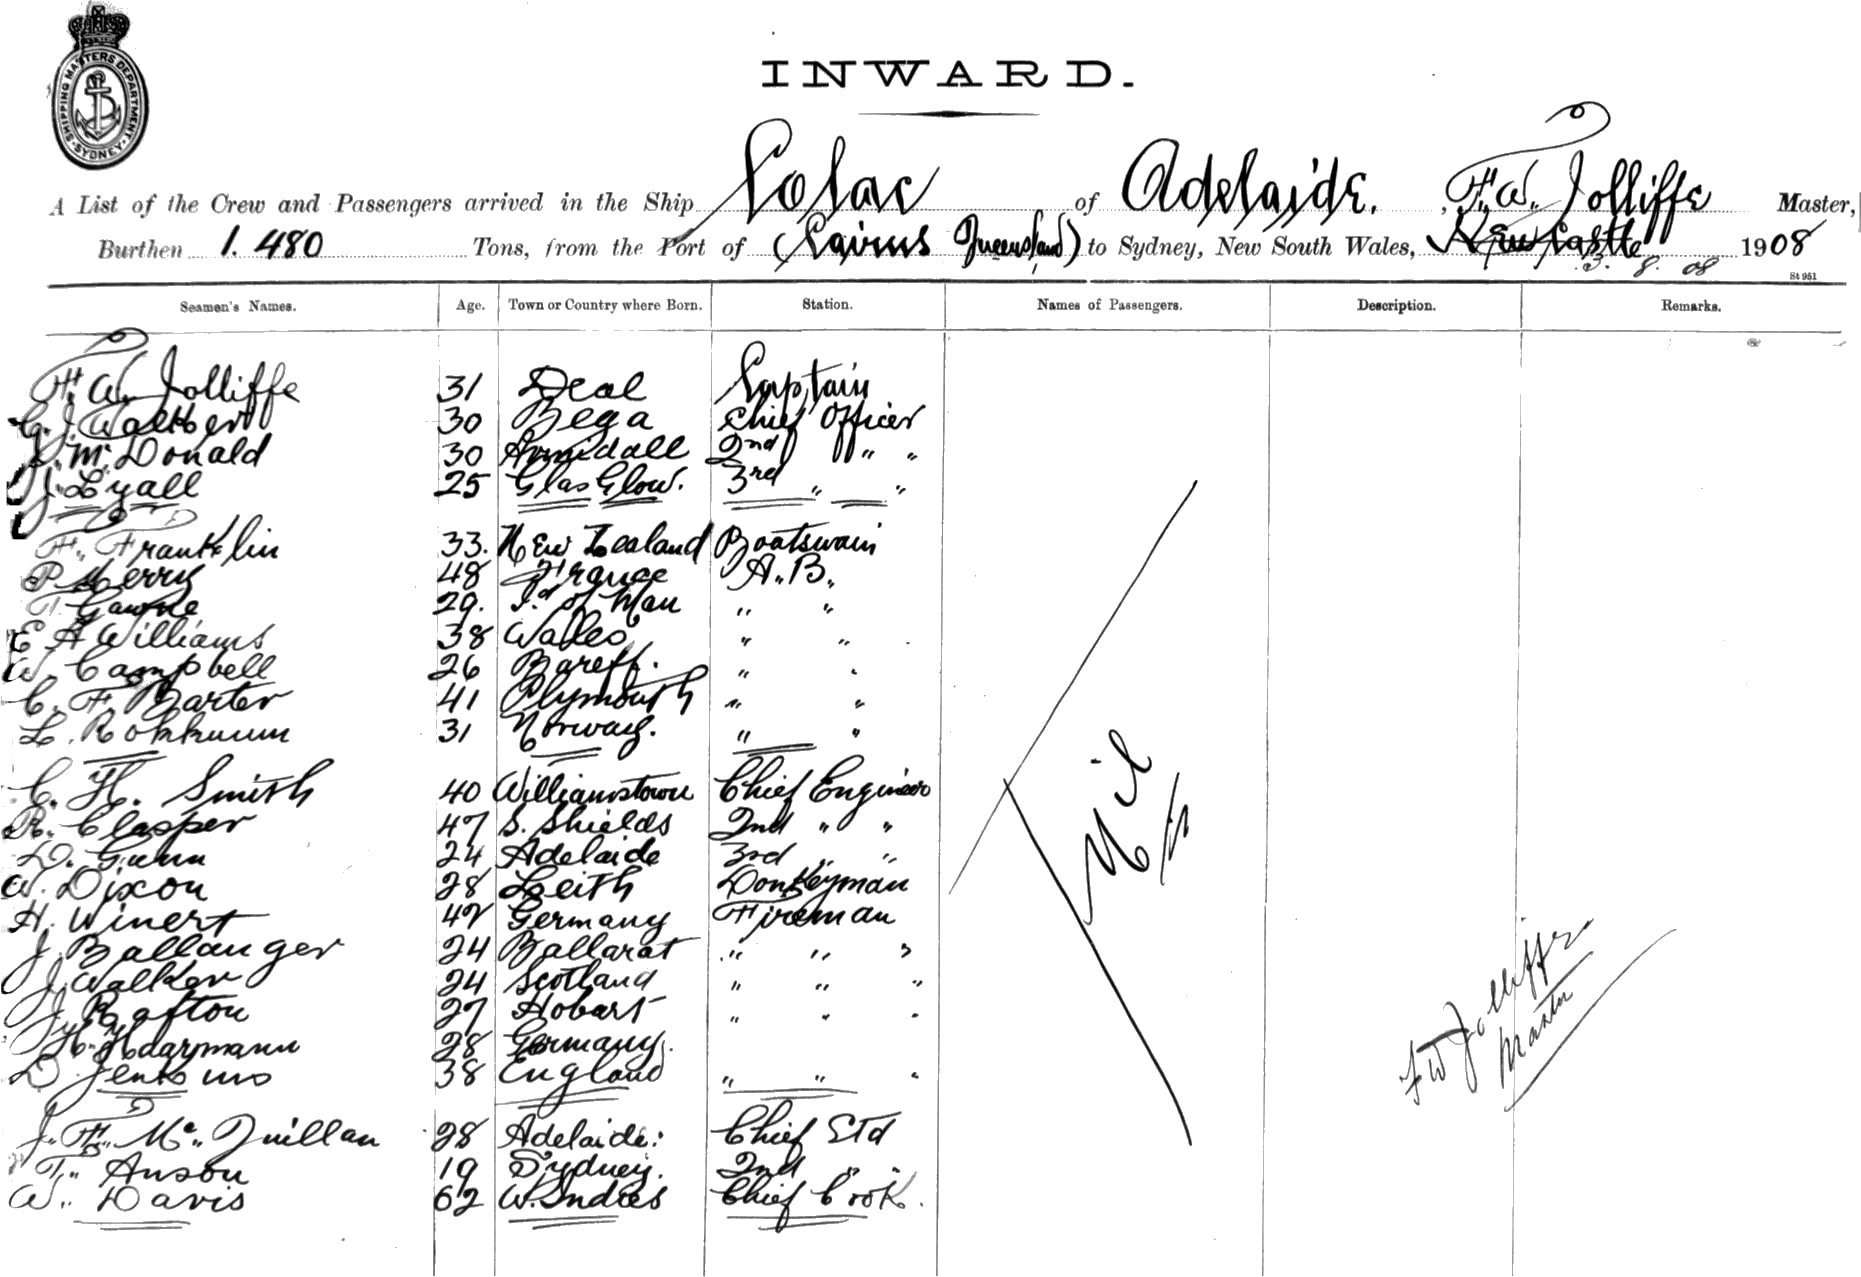 SHIPPING MASTERS DEPARTMENT SYDNEY
INWARD.
A List of the Crew and Passengers arrived in the Ship Colac of Adelaide, F. W. Jolliffe Master,
Burthen 1.480 Tons, from the Port of (Cairns Queensland) to Sydney, New South Wales, Newcastle 1908
3. 8. 08
St 951
Seamen's Names. Age. Town or Country where Born. Station. Names of Passengers. Description. Remarks.
F. W. Jolliffe 31 Deal Captain
G. J. 30 Bega Chief Officer
McDonald 30 Armidall 2nd " "
J. Lyall 25 GlasGlow. 3rd " "
F. Franklin 33. New Zealand Boatswain
P. Merry 48 France A.B.
T. Gawne 29. Id of Man " "
E A Williams 38 Wales " "
W. Campbell 26 Bareff. " "
C. F. Barter 41 Plymouth " "
L. 31 Norway. " "
C. H. Smith 40 Williamstown Chief Engineer
R. Clasper 47 S. Shields 2nd " "
D. Gunn 24 Adelaide 3rd " "
W. Dixon 28 Leith Donkeyman
H. Winert 42 Germany Fireman
J. Ballanger 24 Ballarat " " "
J. Walker 24 Scotland " " "
J. Bafton 27 Hobart " " "
H. Haarmann 28 Germany.
D. Jenkins 38 England " " "
J. F. Mc. Quillan 28 Adelaide. Chief Std
T. Anson 19 Sydney. 2nd "
W. Davis 62 W. Indies Chief Cook.
Nil
F W Jolliffe
Master